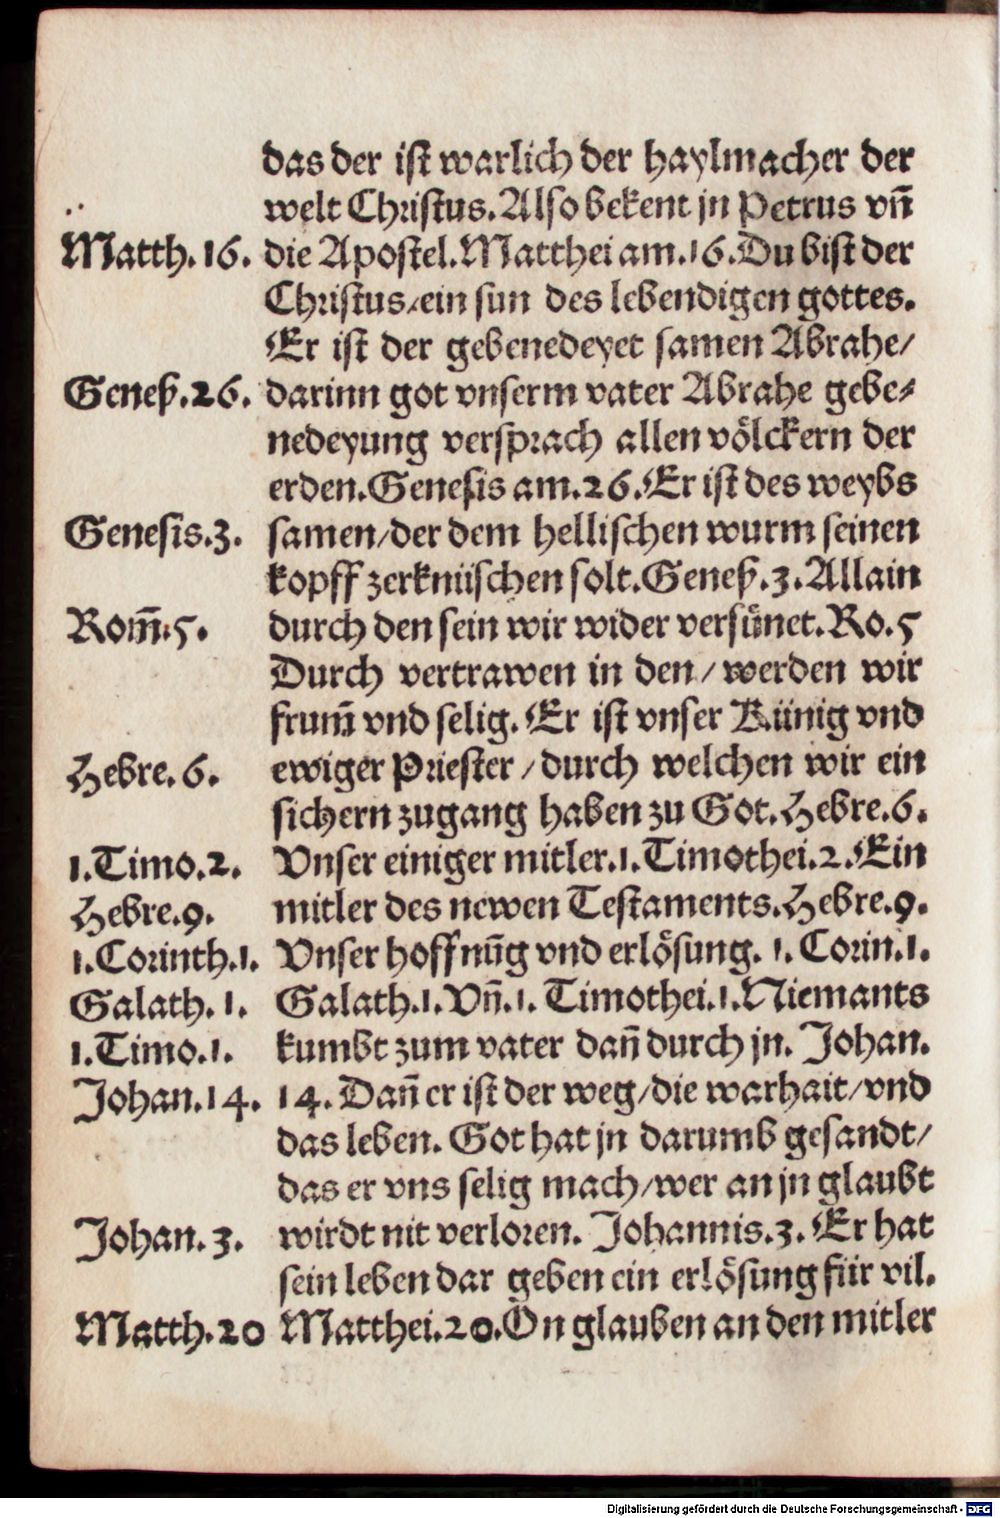 das der ist warlich der haylmacher der
welt Christus. Also bekent jn Petrus vñ
Matth. 16. die Apostel. Matthei am. 16. Du bist der
Christus/ ein sun des lebendigen gottes.
Er ist der gebenedeyet samen Abrahe/
Geneß. 26. darinn got vnserm vater Abrahe gebe⸗
nedeyung versprach allen völckern der
erden. Genesis am. 26. Er ist des weybs
Genesis. 3. samen/ der dem hellischen wurm seinen
kopff zerknüschen solt. Geneß. 3. Allain
Rom̃. 5. durch den sein wir wider versünet. Ro. 5
Durch vertrawen in den/ werden wir
frum̃ vnd selig. Er ist vnser Künig vnd
Hebre. 6. ewiger Priester / durch welchen wir ein
sichern zugang haben zu Got. Hebre. 6.
1. Timo. 2. Vnser einiger mitler. 1. Timothei. 2. Ein
Hebre. 9. mitler des newen Testaments. Hebre. 9.
1. Corinth. 1. Vnser hoffnũg vnd erlösung. 1. Corin. 1.
Galath. 1. Galath. 1. Vñ. 1. Timothei. 1. Niemants
1. Timo. 1. kumbt zum vater dañ durch jn. Johan.
Johan. 14. 14. Dañ er ist der weg/ die warhait/ vnd
das leben. Got hat jn darumb gesandt/
das er vns selig mach/ wer an jn glaubt
Johan. 3. wirdt nit verloren. Johannis. 3. Er hat
sein leben dar geben ein erlösung für vil.
Matth. 20 Matthei. 20. On glauben an den mitler
Digitalisierung gefördert durch die Deutsche Forschungsgemeinschaft - DFG